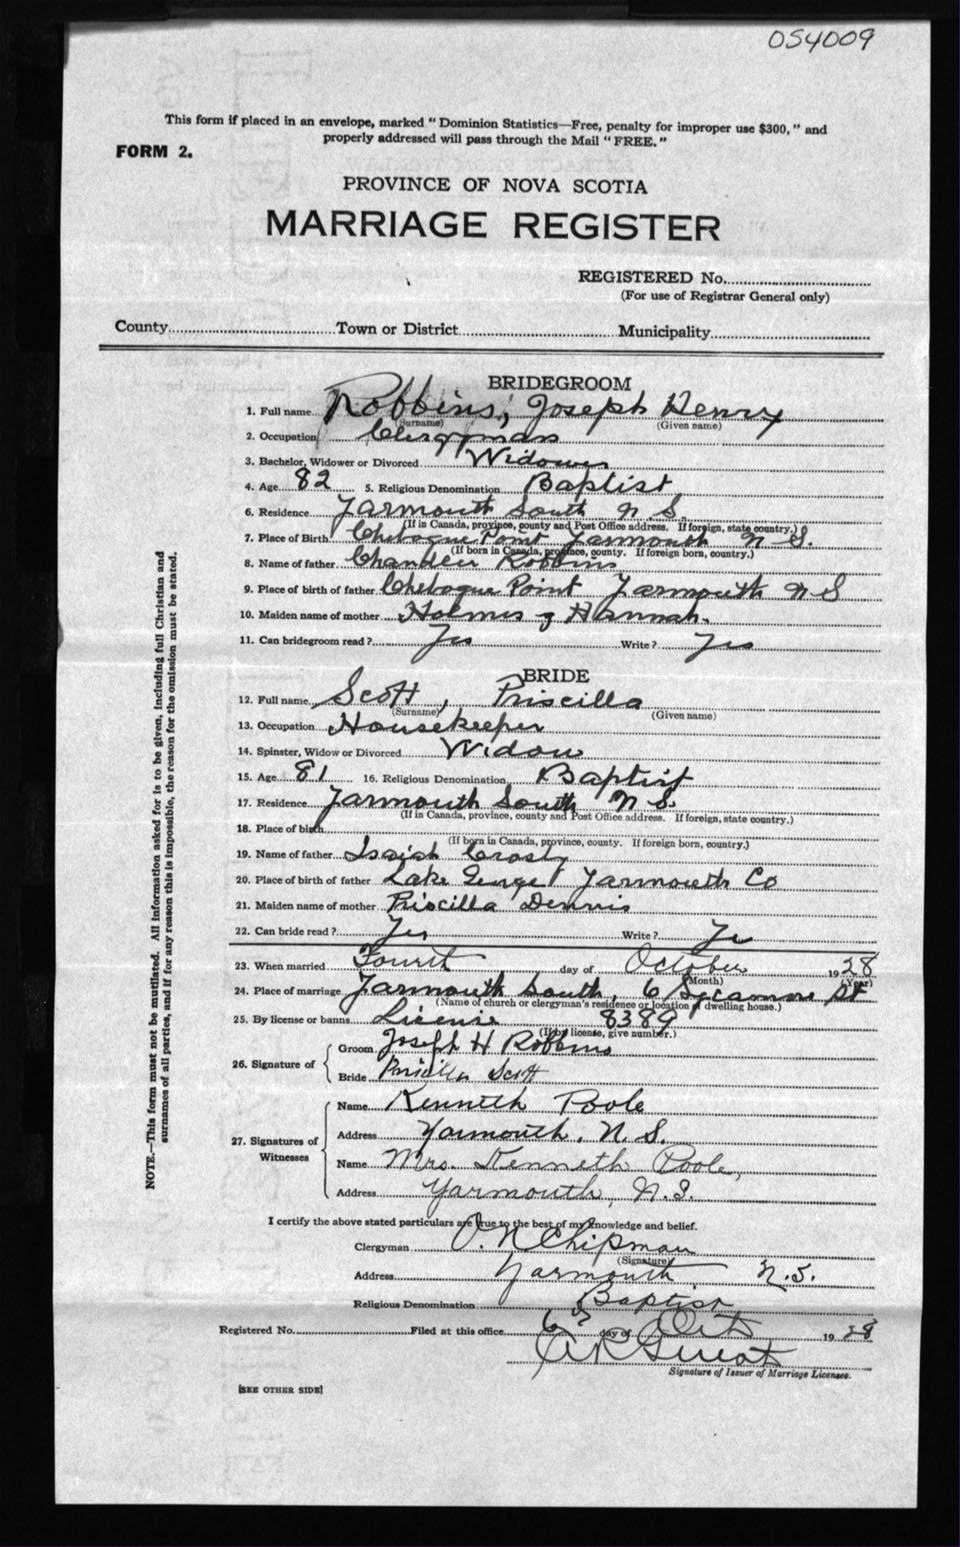 054009
This form if placed in an envelope, marked " Dominion Statistics—Free, penalty for improper use $300, " and
properly addressed will pass through the Mail " FREE. "
FORM 2.
PROVINCE OF NOVA SCOTIA
MARRIAGE REGISTER
REGISTERED No.
(For use of Registrar General only)
County Town or District Municipality
BRIDEGROOM
1. Full name Robbins, Joseph Henry
(Surname) (Given name)
2. Occupation Clergyman
3. Bachelor, Widower or Divorced Widower
4. Age 82 5. Religious Denomination Baptist
6. Residence Yarmouth South N.S.
(If in Canada, province, county and Post Office address. If foreign, state country.)
7. Place of Birth Chebogue Point Yarmouth N S.
(If born in Canada, province, county. If foreign born, country.)
8. Name of father Chandler Robbins
9. Place of birth of father Chebogue Point Yarmouth N S
10. Maiden name of mother Holmes, Hannah.
11. Can bridegroom read ? Yes Write ? Yes
BRIDE
12. Full name Scott, Priscilla
(Surname) (Given name)
13. Occupation Housekeeper
14. Spinster, Widow or Divorced Widow
15. Age 81 16. Religious Denomination Baptist
17. Residence Yarmouth South N S.
(If in Canada, province, county and Post Office address. If foreign, state country.)
18. Place of birth
(If born in Canada, province, county. If foreign born, country.)
19. Name of father Isaiah Crosby
20. Place of birth of father Lake George Yarmouth Co
21. Maiden name of mother Priscilla Dennis
22. Can bride read ? Yes Write ? Yes
23. When married Fourth day of October 1928
(Month) (Year)
24. Place of marriage Yarmouth South, 6 Sycamore St
(Name of church or clergyman's residence or location of dwelling house.)
25. By license or banns License 8389
(If by license, give number.)
26. Signature of
Groom Joseph H Robbins
Bride Priscilla Scott
27. Signatures of Witnesses
Name Kenneth Poole
Address Yarmouth, N. S.
Name Mrs. Kenneth Poole,
Address Yarmouth, N. S.
I certify the above stated particulars are true to the best of my knowledge and belief.
Clergyman O. N Chipman
(Signature)
Address Yarmouth N. S.
Religious Denomination Baptist
Registered No. Filed at this office 6th day of Oct 1928
Signature of Issuer of Marriage Licenses.
[SEE OTHER SIDE]
NOTE.—This form must not be mutilated. All information asked for is to be given, including full Christian and
surnames of all parties, and if for any reason this is impossible, the reason for the omission must be stated.